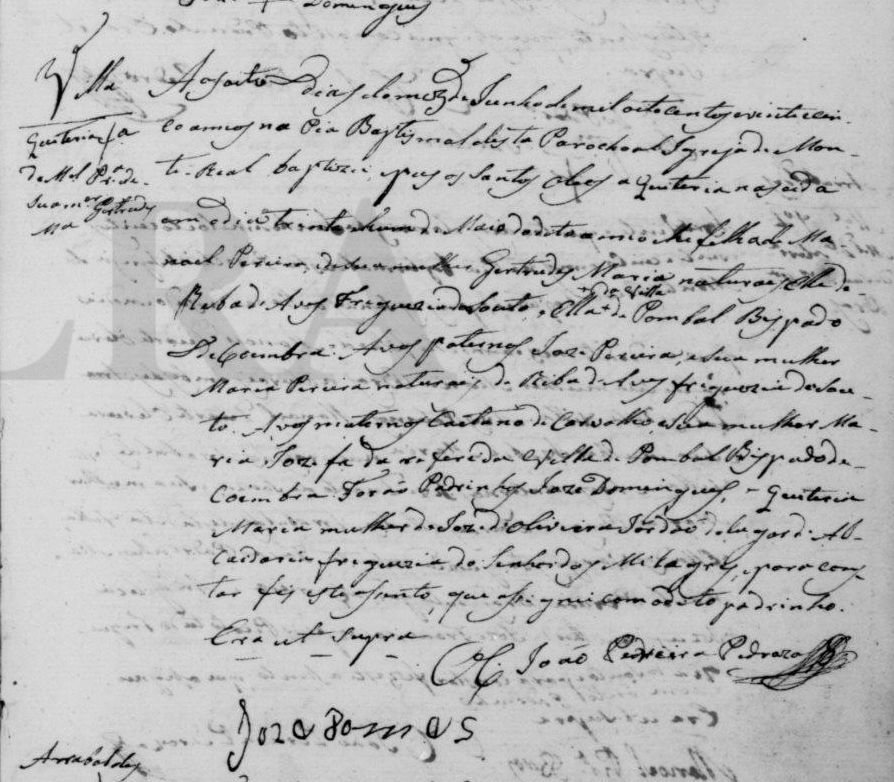 Domingues
V.lla
Quiteria f.a
de M.el Pr.a de
sua m.er Gertrudes
M.a
Aos oito dias do mez de Junho de mil oito centos e vinte e cin-
co annos na Pia Baptismal desta Parochoal Igreja de Mon-
te Real baptizei, e pus os Santos Oleos a Quiteria nascida
em o dia trinta e hum de Maio do dito anno filha de Ma-
noel Pereira, e de sua mulher Gertrudes Maria naturaes elle de
Riba de Aves Freguezia de Souto, e Ella d.ta Villa de Pombal Bispado
de Coimbra. Avos paternos Joze Pereira, e sua mulher
Maria Pereira naturaes de Riba de Aves freguezia de Sou-
to. Avos maternos Caetano de Carvalho e sua mulher Ma-
ria Jozefa da referida Villa de Pombal Bispado de
Coimbra. Forão Padrinhos Joze Domingues, e Quiteria
Maria mulher de Joze de Oliveira Jordão do lugar de Al-
caidaria freguezia do Senhor dos Milagres, e para cons-
tar fiz este asento, que asignei com o dito padrinho.
Era ut supra
João Pedreira Pedroza
Joze Domes
Arrabalde